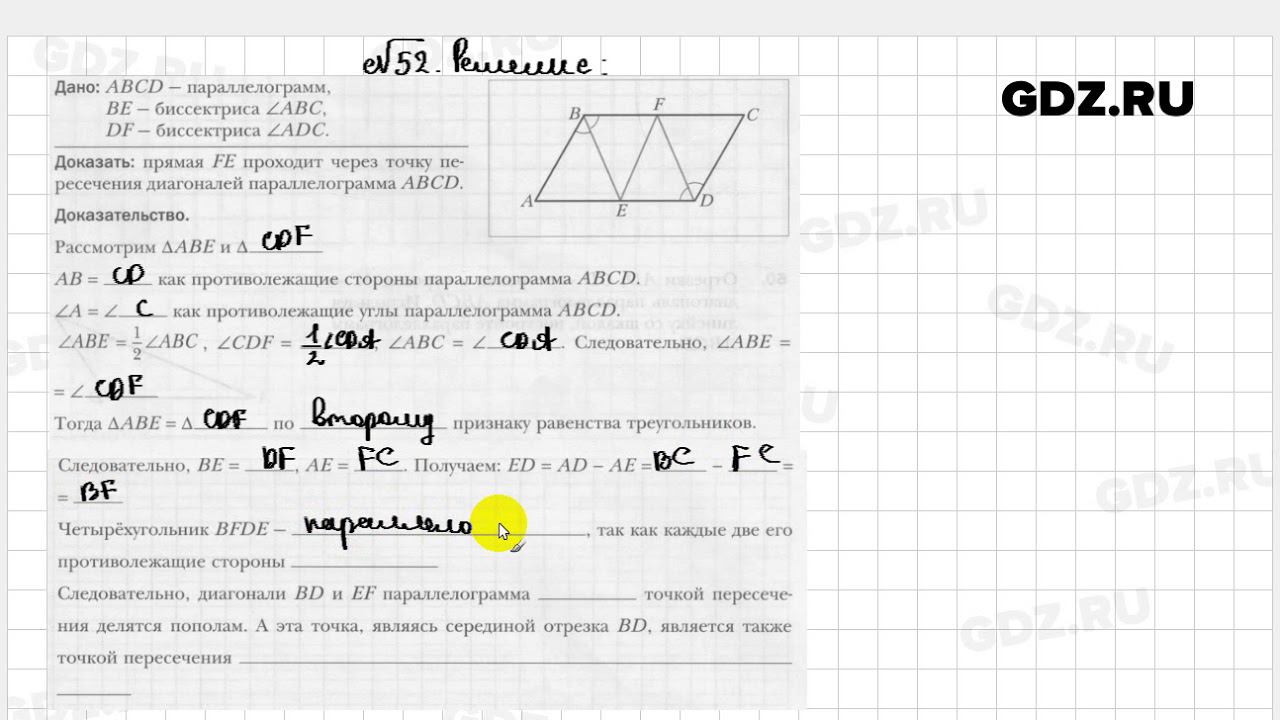 №52. Решение:
GDZ.RU
Дано: ABCD – параллелограмм,
BE – биссектриса ∠ABC,
DF – биссектриса ∠ADC.
Доказать: прямая FE проходит через точку пе-
ресечения диагоналей параллелограмма ABCD.
B F C
A E D
Доказательство.
Рассмотрим ΔABE и Δ CDF
AB = CD как противолежащие стороны параллелограмма ABCD.
∠A = ∠ C как противолежащие углы параллелограмма ABCD.
∠ABE = 1/2 ∠ABC , ∠CDF = 1/2 ∠CDA, ∠ABC = ∠ CDA. Следовательно, ∠ABE =
= ∠ CDF
Тогда ΔABE = Δ CDF по второму признаку равенства треугольников.
Следовательно, BE = DF, AE = FC. Получаем: ED = AD – AE = BC – FC =
= BF
Четырёхугольник BFDE – параллело , так как каждые две его
противолежащие стороны
Следовательно, диагонали BD и EF параллелограмма точкой пересече-
ния делятся пополам. А эта точка, являясь серединой отрезка BD, является также
точкой пересечения
GDZ.RU
GDZ.RU
GDZ.RU
GDZ.RU
GDZ.RU